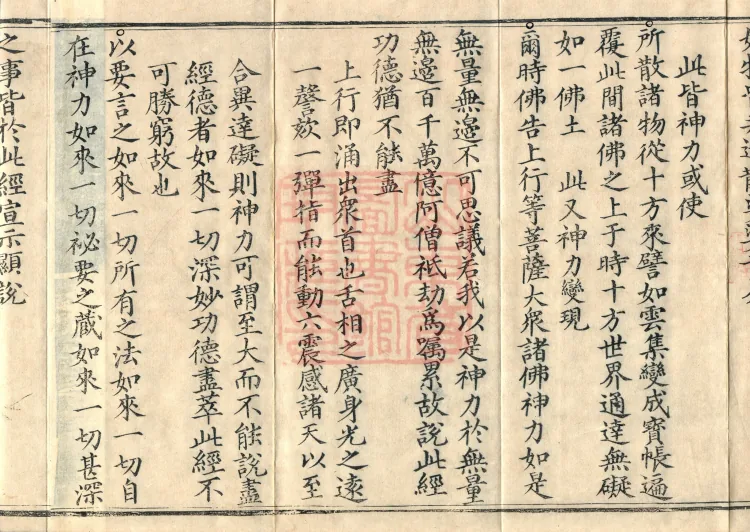 此皆神力或使
所散諸物從十方來譬如雲集變成寶帳遍
覆此間諸佛之上于時十方世界通達無礙
如一佛土 此又神力變現
爾時佛告上行等菩薩大衆諸佛神力如是
無量無邊不可思議若我以是神力於無量
無邊百千萬億阿僧祇劫爲嘱累故說此經
功德猶不能盡
上行即涌出衆首也舌相之廣身光之遠
一謦欬一彈指而能動六震感諸天以至
合異達礙則神力可謂至大而不能說盡
經德者如來一切深妙功德盡萃此經不
可勝窮故也
以要言之如來一切所有之法如來一切自
在神力如來一切祕要之蔵如來一切甚深
之事皆於此經宣示顯說